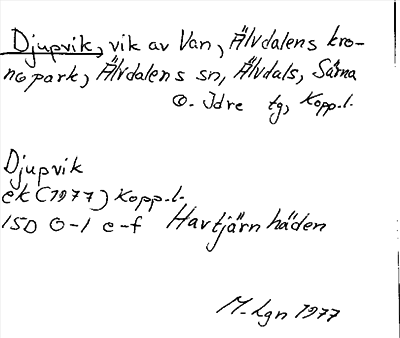 Djupvik, vik av Van, Älvdalens kro-
nopark, Älvdalens sn, Älvdals, Särna
o. Idre tg, Kopp.l.
Djupvik
ek (1977) Kopp.l.
15D 0-1 e-f Havtjärnhäden
M. Lgn 1977